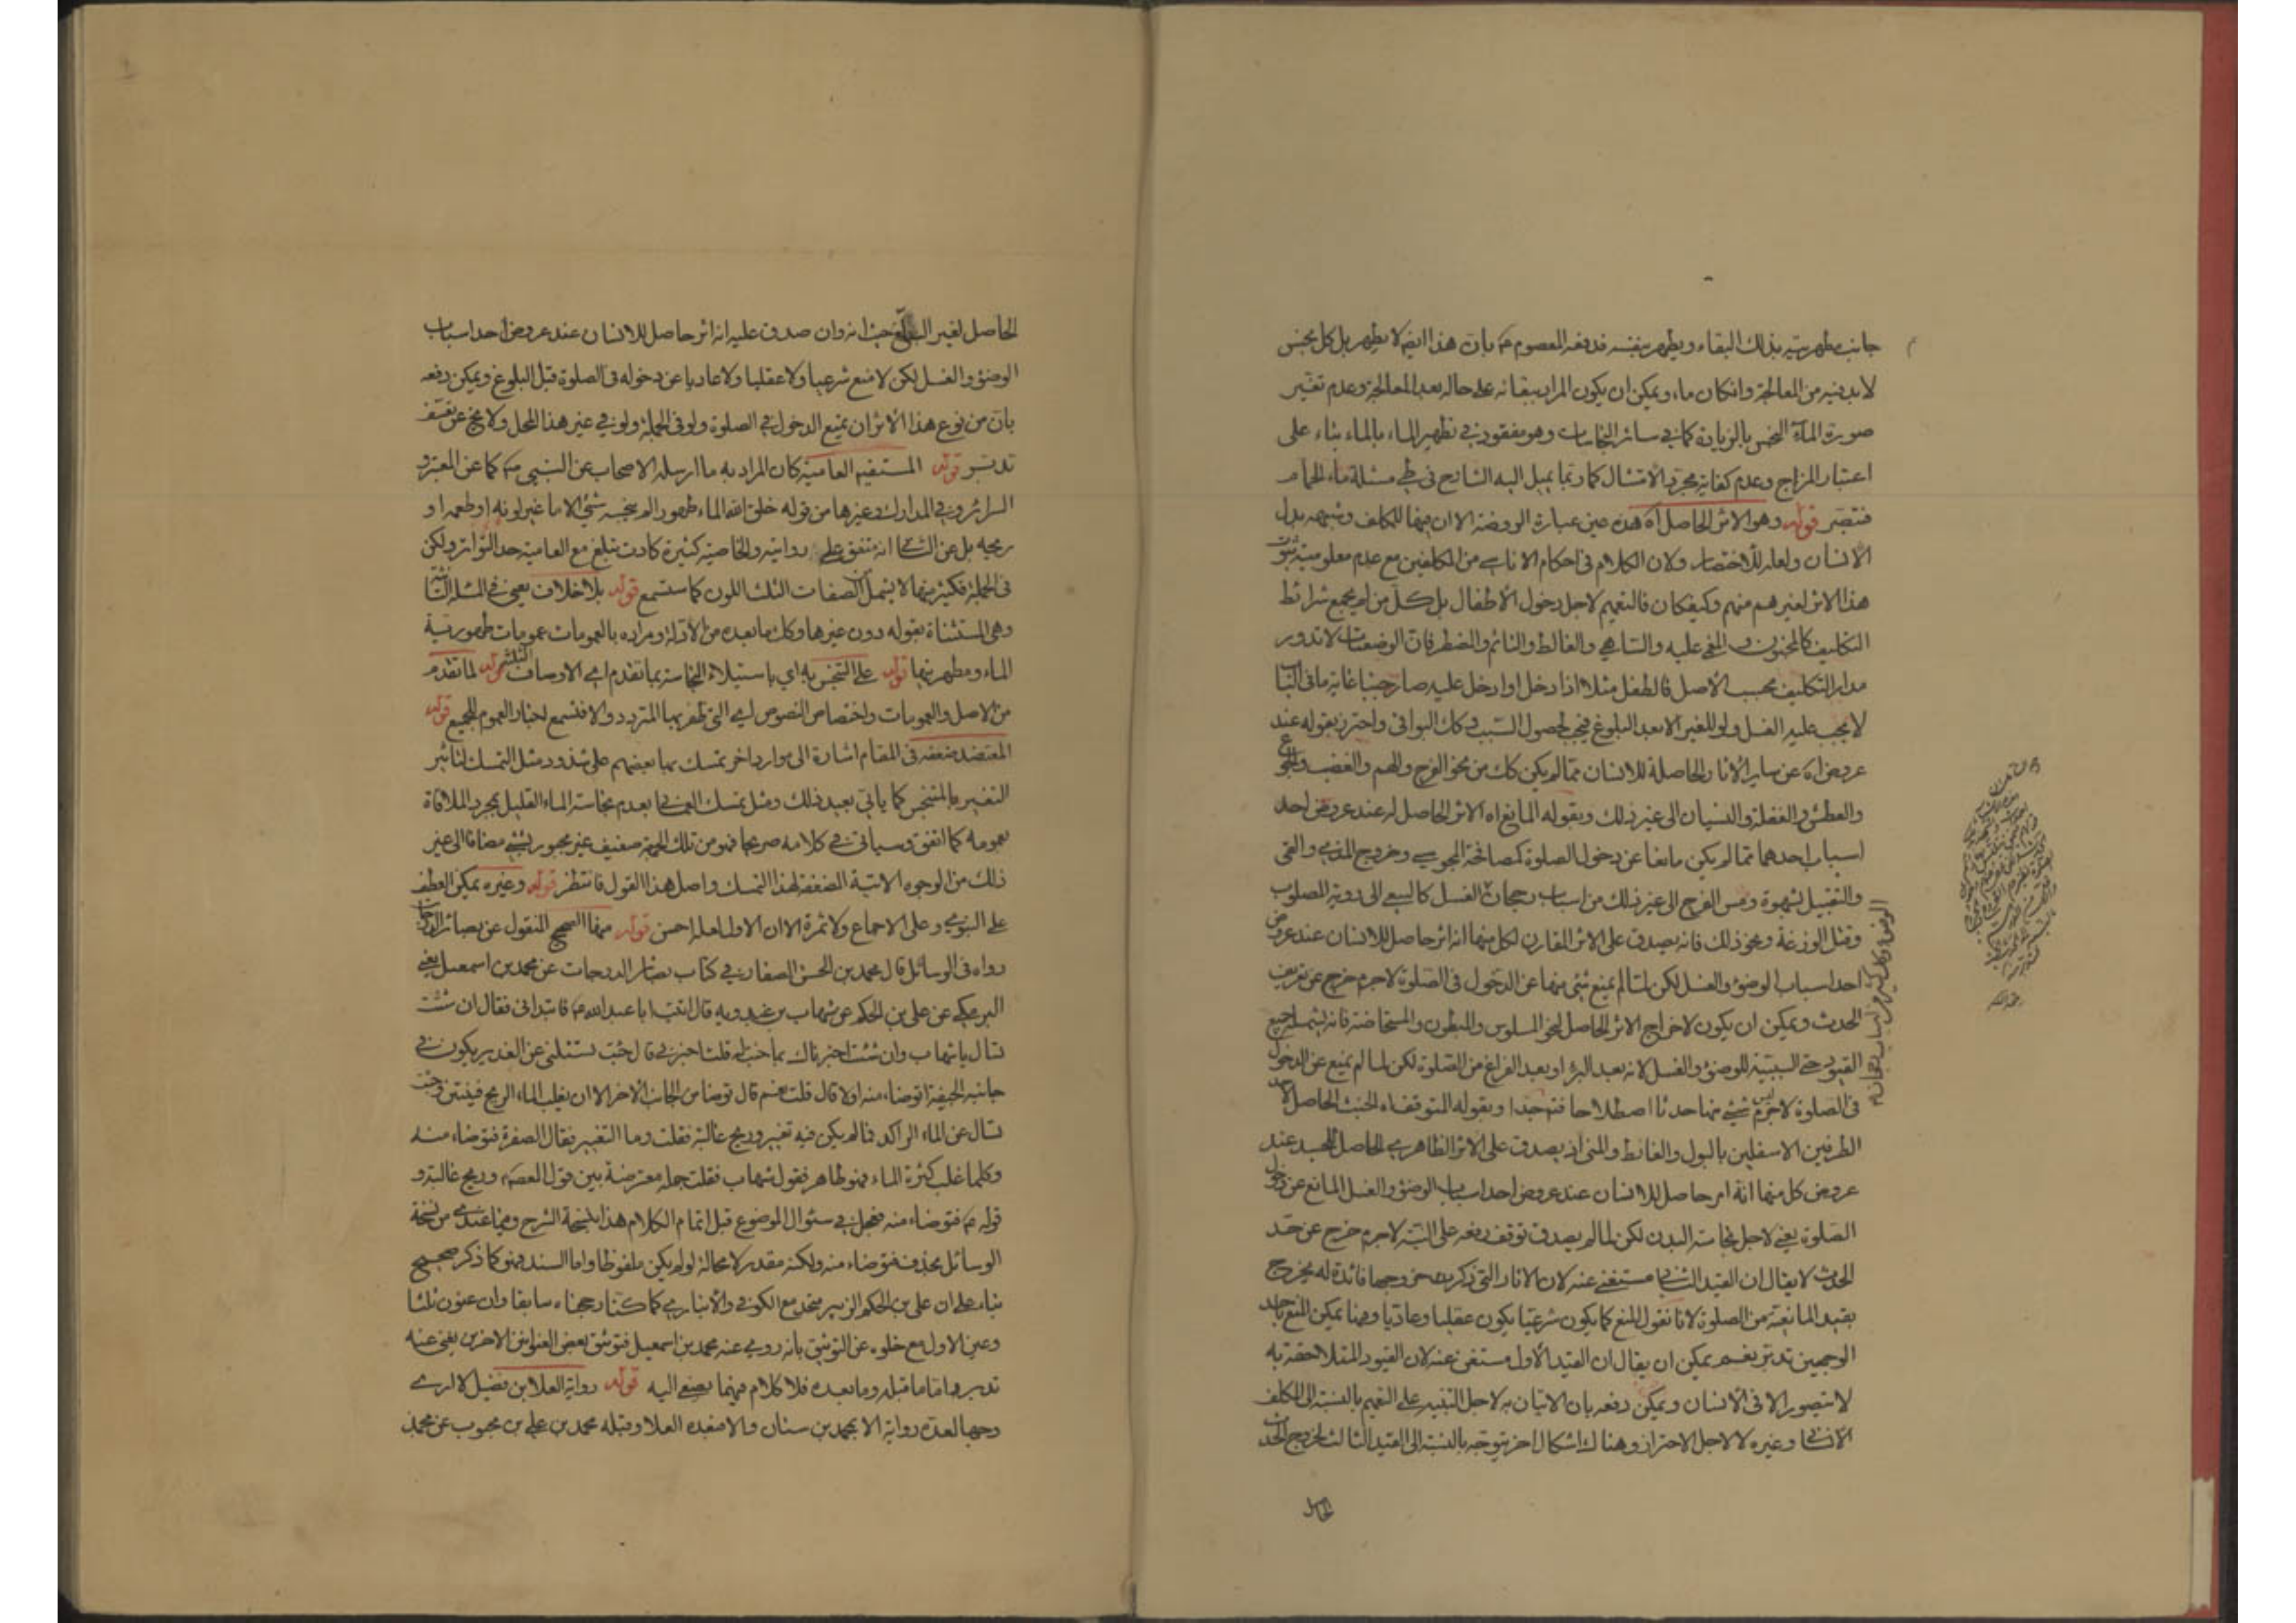 جانب مطهريته بذلك البقاء ويطهر بنفسه فدفعه المعصوم ع بان هذا ايضا لا يطهر بل كل نجس
لا بد فيه من المعالجة وانكان ماء ويمكن ان يكون المراد ببقائه على حاله بعد المعالجة وعدم تغيير
صورة الماء النجس بالزيادة كما في ساير النجاسات وهو مفقود في تطهير الماء بالماء بناء على
اعتبار المزاج وعدم كفاية مجرد الاتصال كما ربما يميل اليه الشارح في طي مسئلة ماء الحمام
فتبصر قوله وهو الاثر الحاصل اه هذه عين عبارة الروضة الا ان فيها للمكلف وشبهه بدل
الانسان ولعله للاختصار ولان الكلام في احكام الاناسي من المكلفين مع عدم معلومية ثبوت
هذا الاثر لغيرهم منهم وكيفكان فالتعميم لاجل دخول الاطفال بل كل من لم يجمع شرائط
التكليف كالمجنون والمغمى عليه والساهي والغالط والنائم والمضطر فان الوضعيات لا تدور
مدار التكليف بحسب الاصل فالطفل مثلا اذا دخل او ادخل عليه صار جنبا غاية ما في الباب
لا يجب عليه الغسل ولو للغير الا بعد البلوغ فيجب لحصول السبب وكك البواقي واحترز بقوله عند
عروض اه عن ساير الاثار الحاصلة للانسان مما لم يكن كك من نحو الفرح والهم والغضب والجوع
والعطش والغفلة والنسيان الى غير ذلك وبقوله المانع اه الاثر الحاصل له عند عروض احد
اسباب احدهما مما لم يكن مانعا عن دخول الصلوة كمصافحة المجوسي وخروج المذي والقي
والتقبيل لشهوة ومس الفرج الى غير ذلك من اسباب رجحان الغسل كالسعي الى روية المصلوب
وقتل الوزغة ونحو ذلك فانه يصدق على الاثر المقارن لكل منها انه اثر حاصل للانسان عند عروض
احد اسباب الوضوء والغسل لكن لما لم يمنع شئ منها عن الدخول في الصلوة لا جرم خرج عن تعريف
الحدث ويمكن ان يكون لاخراج الاثر الحاصل لنحو المسلوس والمبطون والمستحاضة فانه يشمله جميع
القيود حتى السببية للوضوء والغسل لانه بعد البرء او بعد الفراغ من الصلوة لكن لما لم يمنع عن الدخول
في الصلوة لا جرم ليس شئ منها حدثا اصطلاحا فتم جدا وبقوله المتوقف اه الخبث الحاصل لاحد
الطرفين الاسفلين بالبول والغائط والمني اذ يصدق على الاثر الظاهري الحاصل للجسد عند
عروض كل منها انه امر حاصل للانسان عند عروض احد اسباب الوضوء والغسل المانع عن دخول
الصلوة يعني لاجل نجاسة البدن لكن لما لم يصدق توقف رفعه على النية لا جرم خرج عن حد
الحدث لا يقال ان القيد الثاني مستغنى عنه لان الاثار التي ذكرت خروجها فائدة له يخرج
بقيد المانعية من الصلوة لانا نقول المنع كما يكون شرعيا يكون عقليا وعاديا وهنا يمكن المنع باحد
الوجهين تدبر نعم يمكن ان يقال ان القيد الاول مستغنى عنه لان القيود المتلاحقة به
لا يتصور الا في الانسان ويمكن دفعه بان الاتيان به لاجل التنبيه على التعميم بالنسبة الى المكلف
الانسي وغيره لا لاجل الاحتراز وهناك اشكال اخر يتوجه بالنسبة الى القيد الثالث لخروج الحدث
الحاصل
الحاصل لغير البالغ حيث انه وان صدق عليه انه اثر حاصل للانسان عند عروض احد اسباب
الوضوء والغسل لكن لا منع شرعيا ولا عقليا ولا عاديا عن دخوله في الصلوة قبل البلوغ ويمكن دفعه
بان من نوع هذا الاثر ان يمنع الدخول في الصلوة ولو في الجملة ولو في غير هذا المحل ولا يخ عن تعسف
تدبر قوله المستفيه العامية كان المراد به ما ارسله الاصحاب عن النبي ص كما عن المعتبر و
السرائر وفي المدارك وغيرها من قوله خلق الله الماء طهورا لم ينجسه شئ الا ما غير لونه او طعمه او
ريحه بل عن الشا انه متفق على روايته والخاصية كثيرة كادت تبلغ مع العامية حد التواتر ولكن
في الجملة فكثير منها لا يشمل الصفات الثلث اللون كما ستسمع قوله بلا خلاف يعني في المسئلة
وهي المستثناة بقوله دون غيرها وكك ما بعده من الادلة ومراده بالعمومات عمومات طهورية
الماء ومطهريتها قوله على التنجس به اي باستيلاء النجاسة بما تقدم اي الاوصاف الثلثة قوله لما تقدم
من الاصل والعمومات واختصاص النصوص اي التي ظفر بها المتردد والا فتسمع اخبار العموم للجميع قوله
المعتضد ضعفه في المقام اشارة الى موارد اخر تمسك بها بعضهم على شذوذ مثل التمسك لتاثير
التغيير بالمتنجس كما ياتي بعيد ذلك ومثل تمسك العماني بعدم نجاسة الماء القليل بمجرد الملاقاة
بعمومه كما اتفق وسياتي في كلامه صريحا فهو من تلك الجهة ضعيف غير مجبور بشئ مضافا الى غير
ذلك من الوجوه الاتية المضعفة لهذا التمسك واصل هذا القول فانتظر قوله وغيره يمكن العطف
على النبوي وعلى الاجماع ولا ثمرة الا ان الاول لعله احسن قوله منها الصحيح المنقول عن بصائر الدرجات
رواه في الوسائل قال محمد بن الحسن الصفار في كتاب بصائر الدرجات عن محمد بن اسمعيل يعني
البرمكي عن علي بن الحكم عن شهاب بن عبد ربه قال اتيت ابا عبد الله ع فابتداني فقال ان شئت
تسال يا شهاب وان شئت اخبرناك بما جئت له قلت اخبرني قال جئت تسئلني عن الغدير يكون في
جانبه الجيفة اتوضاء منه اولا قال قلت نعم قال توضا من الجانب الاخر الا ان يغلب الماء الريح فينتن وجئت
تسال عن الماء الراكد فما لم يكن فيه تغيير وريح غالبة فقلت وما التغيير فقال الصفرة فتوضاء منه
وكلما غلب كثرة الماء فهو طاهر فقول شهاب فقلت جملة معترضة بين قول المعصوم وريح غالبة و
قوله ع فتوضاء منه فعجل في سئوال الموضوع قبل اتمام الكلام هذا بنسخة الشرح وفيما عندي من نسخة
الوسائل بحذف فتوضاء منه ولكنه مقدر لا محالة لو لم يكن ملفوظا واما السند فهو كما ذكر صحيح
بناء على ان علي بن الحكم الزبير متحد مع الكوفي والانباري كما كنا رجحناه سابقا وان عنون ثلثا
وعين الاول مع خلوه عن التوثيق بانه روى عنه محمد بن اسمعيل فتوثيق بعض العناوين الاخرين يغني عنه
تدبر واما ما قبله وما بعده فلا كلام فيهما يصغى اليه قوله رواية العلا بن فضيل لا ارى
وجها لعده رواية الا محمد بن سنان والا فبعده العلا وقبله محمد بن علي بن محبوب عن محمد بن